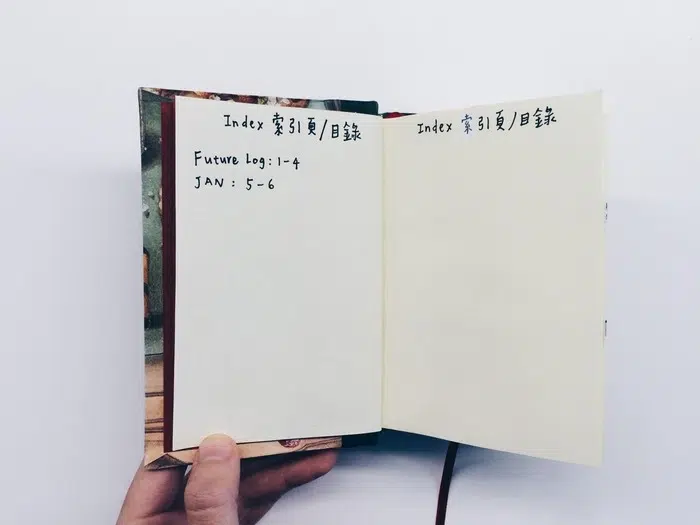 Index 索引頁/目錄
Future Log: 1-4
JAN: 5-6
Index 索引頁/目錄